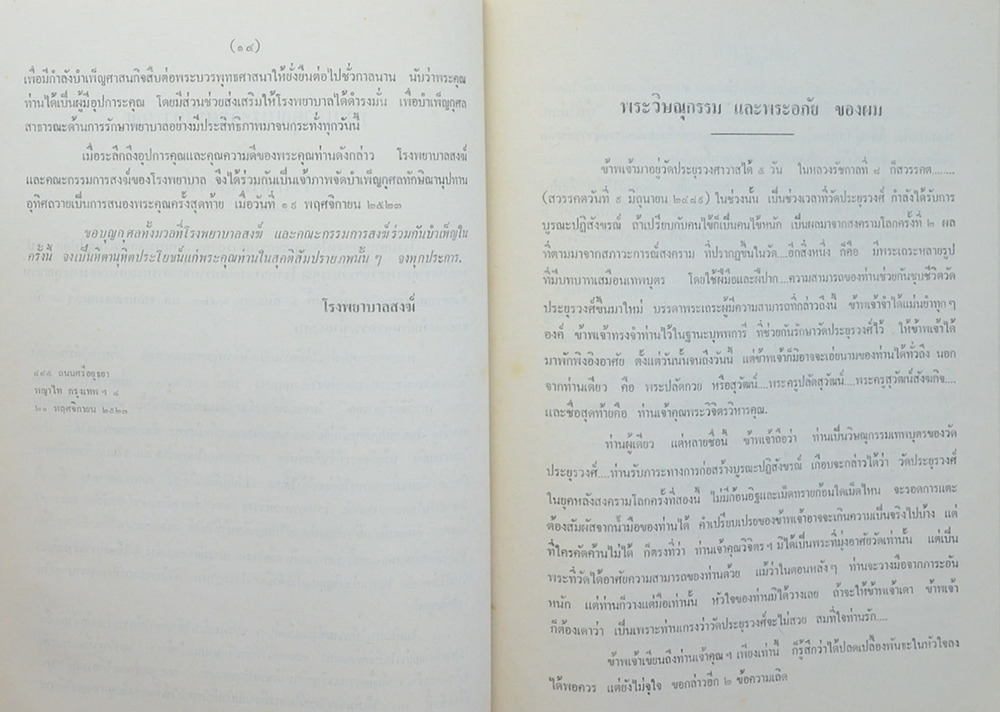 (๑๔)
เพื่อมีกำลังบำเพ็ญศาสนกิจสืบต่อพระบวรพุทธศาสนาให้ยั่งยืนต่อไปชั่วกาลนาน นับว่าพระคุณ
ท่านได้เป็นผู้มีอุปการะคุณ โดยมีส่วนช่วยส่งเสริมให้โรงพยาบาลได้ดำรงมั่น เพื่อบำเพ็ญกุศล
สาธารณะด้านการรักษาพยาบาลอย่างมีประสิทธิภาพมาจนกระทั่งทุกวันนี้
เมื่อระลึกถึงอุปการคุณและคุณความดีของพระคุณท่านดังกล่าว โรงพยาบาลสงฆ์
และคณะกรรมการสงฆ์ของโรงพยาบาล จึงได้ร่วมกันเป็นเจ้าภาพจัดบำเพ็ญกุศลทักษิณานุปทาน
อุทิศถวายเป็นการสนองพระคุณครั้งสุดท้าย เมื่อวันที่ ๑๙ พฤศจิกายน ๒๕๒๓
ขอบุญกุศลทั้งมวลที่โรงพยาบาลสงฆ์ และคณะกรรมการสงฆ์ร่วมกันบำเพ็ญใน
ครั้งนี้ จงเป็นหิตานุหิตประโยชน์แก่พระคุณท่านในสุคติสัมปรายภพนั้น ๆ จงทุกประการ.
โรงพยาบาลสงฆ์
๔๔๕ ถนนศรีอยุธยา
พญาไท กรุงเทพ ฯ ๔
๒๑ พฤศจิกายน ๒๕๒๓
พระวิษณุกรรม และพระอภัย ของผม
ข้าพเจ้ามาอยู่วัดประยุรวงศาวาสได้ ๕ วัน ในหลวงรัชกาลที่ ๘ ก็สวรรคต........
(สวรรคตวันที่ ๙ มิถุนายน ๒๔๘๙) ในช่วงนั้น เป็นช่วงเวลาที่วัดประยุรวงศ์ กำลังได้รับการ
บูรณะปฏิสังขรณ์ ถ้าเปรียบกับคนไข้ก็เป็นคนไข้หนัก เป็นผลมาจากสงครามโลกครั้งที่ ๒ ผล
ที่ตามมาจากสภาวะการณ์สงคราม ที่ปรากฏขึ้นในวัด....อีกสิ่งหนึ่ง ก็คือ มีพระเถระหลายรูป
ที่มีบทบาทเสมือนเทพบุตร โดยใช้ฝีมือและฝีปาก....ความสามารถของท่านช่วยกันชุบชีวิตวัด
ประยุรวงศ์ขึ้นมาใหม่ บรรดาพระเถระผู้มีความสามารถที่กล่าวถึงนี้ ข้าพเจ้าจำได้แม่นยำทุก ๆ
องค์ ข้าพเจ้าทรงจำท่านไว้ในฐานะบุพพการี ที่ช่วยกันรักษาวัดประยุรวงศ์ไว้ ให้ข้าพเจ้าได้
มาพักพิงอิงอาศัย ตั้งแต่วันนั้นจนถึงวันนี้ แต่ข้าพเจ้าก็มิอาจจะเอ่ยนามของท่านได้ทั่วถึง นอก
จากท่านเดียว คือ พระปลัดกวย หรือสุวัฒน์....พระครูปลัดสุวัฒน์....พระครูสุวัฒน์สังฆกิจ....
และชื่อสุดท้ายคือ ท่านเจ้าคุณพระวิจิตรวิหารคุณ.
ท่านผู้เดียว แต่หลายชื่อนี้ ข้าพเจ้าถือว่า ท่านเป็นวิษณุกรรมเทพบุตรของวัด
ประยุรวงศ์....ท่านรับภาระทางการก่อสร้างบูรณะปฏิสังขรณ์ เกือบจะกล่าวได้ว่า วัดประยุรวงศ์
ในยุคหลังสงครามโลกครั้งที่สองนี้ ไม่มีก้อนอิฐและเม็ดทรายก้อนใดเม็ดไหน จะรอดการแตะ
ต้องสัมผัสจากน้ำมือของท่านได้ คำเปรียบเปรยของข้าพเจ้าอาจจะเกินความเป็นจริงไปบ้าง แต่
ที่ใครคัดค้านไม่ได้ ก็ตรงที่ว่า ท่านเจ้าคุณวิจิตร ฯ มิได้เป็นพระที่มุ่งอาศัยวัดเท่านั้น แต่เป็น
พระที่วัดได้อาศัยความสามารถของท่านด้วย แม้ว่าในตอนหลัง ๆ ท่านจะวางมือจากภาระอัน
หนัก แต่ท่านก็วางแต่มือเท่านั้น หัวใจของท่านมิได้วางเลย ถ้าจะให้ข้าพเจ้าเดา ข้าพเจ้า
ก็ต้องเดาว่า เป็นเพราะท่านเกรงว่าวัดประยุรวงศ์จะไม่สวย สมที่ใจท่านรัก....
ข้าพเจ้าเขียนถึงท่านเจ้าคุณ ฯ เพียงเท่านี้ ก็รู้สึกว่าได้ปลดเปลื้องพันธะในหัวใจลง
ได้พอควร แต่ยังไม่จุใจ ขอกล่าวอีก ๒ ข้อความเถิด